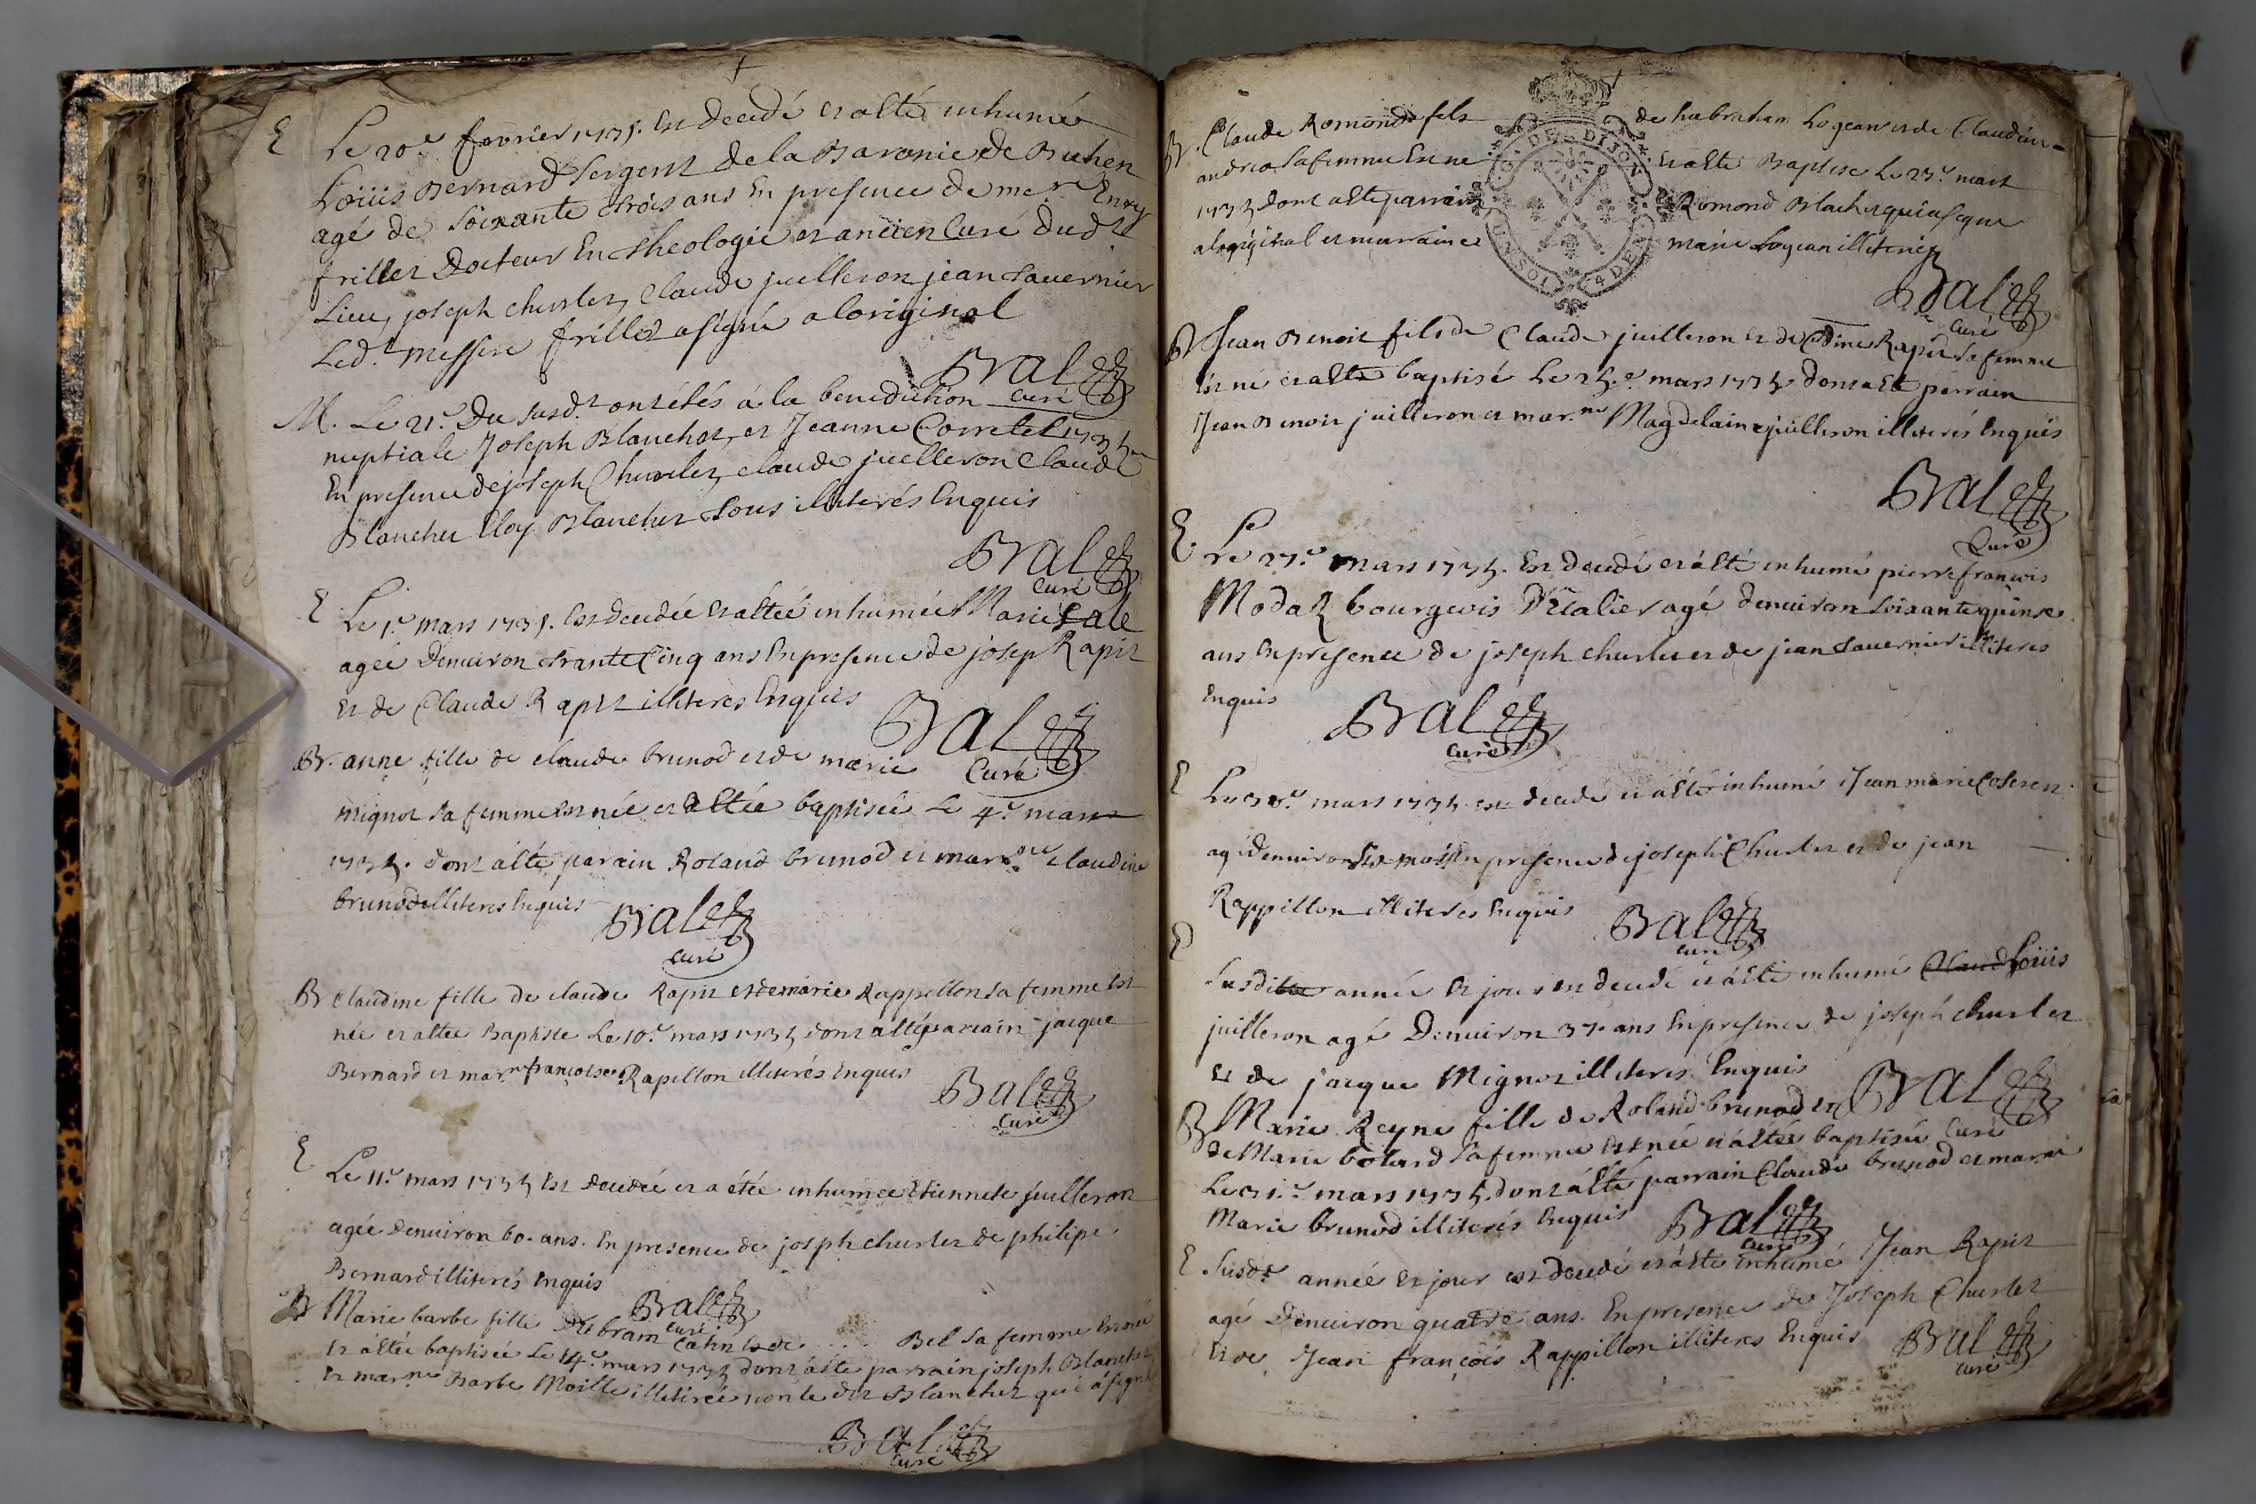 E Le 20e fevrier 1735. Est decedé et a esté inhumé
Loüis Bernard sergent de la Baronie de Buhen
agé de soixante trois ans En presence de me re Enry
frillet Docteur En theologie et ancien Curé dudt
Lieu, joseph churlet, claude juilleron jean tavernier
Ledt messire frillet a signé a loriginal
Bal
Curé
M. Le 21e Du susdt ont étés á la benediction
nuptiale Joseph Blanchot, et Jeanne Cornetet 1735
En presence de joseph Churlet, claude juilleron claude
Blanchet Eloy Blanchet tous illiterés Enquis
Bal
Curé
E Le 1e mars 1735. Est decedée Et a estée inhumée Marie
ageé Denuiron trante Cinq ans En presence de josep Rapit
Et de Claude Rapit illiteres Enquis
Bal
Curé
B. anne fille de claude brunod et de marie
mignot sa femme est née et a Estée baptisée Le 4e mars
1735. dont a esté parain Roland brunod et marne claudine
brunod illiteres Enquis
Bal
Curé
B Claudine fille de claude Rapit et de marie Rappellon sa femme Est
née et a estée Baptisée Le 10e mars 1735 dont a esté parain jacque
Bernard et marne françoise Rapillon illiterés Enquis
Bal
Curé
E Le 11e mars 1735 Est decedée et a étée inhumée Etiennete juilleron
agée Denuiron 60. ans. En presence de joseph churlet de philipe
Bernard illiterés Enquis
Bal
Curé
B Marie barbe fille D'Ebram Cahin et de .... Bel sa femme Est née
Et a Estée baptisée Le 14e mars 1735 dont a esté parrain joseph Blanchet
Et marne Barbe Moille illitireé non le dit Blanchet qui a signé
Bal
Curé
B. Claude Romond fils de habraham Logean et de Claudine
andrea sa femme Est né Et a Esté Baptisé Le 23e mars
1735 dont a esté parrain Romond Blachet qui a signé
a loriginal et marraine marie Logean illiterée
Bal
Curé
B Jean Benoit fils de Claude juilleron et de Cdine Rapit sa femme
Est né et a Esté baptisé Le 25.e mars 1735 dont a Eté parrain
Jean Benoit juilleron et mar.ne Magdelaine juilleron illiterés Enquis
Bal
Curé
E. Le
Le 27.e mars 1735. Est decedé et a esté inhumé pierre françois
Modaz bourgeois D'Etalier agé denuiron soixante quinse
ans En presence de joseph churlet et de jean tavernier illiteres
Enquis
Bal
Curé
E Le mars 1735 est decedé et a esté inhumé Jean marie
agé denuiron six mois En presence de joseph Churlet et de jean
Rappillon illiteres Enquis
Bal
Curé
E
Susdite année Et jour est decedé et a Esté inhumé Claud Loüis
juilleron agé Denuiron 37. ans En presence de joseph churlet
et de jacque Mignot illiteres Enquis
Bal
Curé
B Marie Reyne fille de Roland brunod et
de Marie bolard sa femme Est née et a Estée baptisée
Le 31.e mars 1735. dont a esté parrain Claude brunod et marne
Marie brunod illiterés Enquis
Bal
Curé
E Susdte année Et jour est decedé et a Esté inhumé Jean Rapit
agé Denuiron quatre ans. En presence de Joseph Churlet
Et de Jean françois Rappillon illiteres Enquis
Bal
Curé